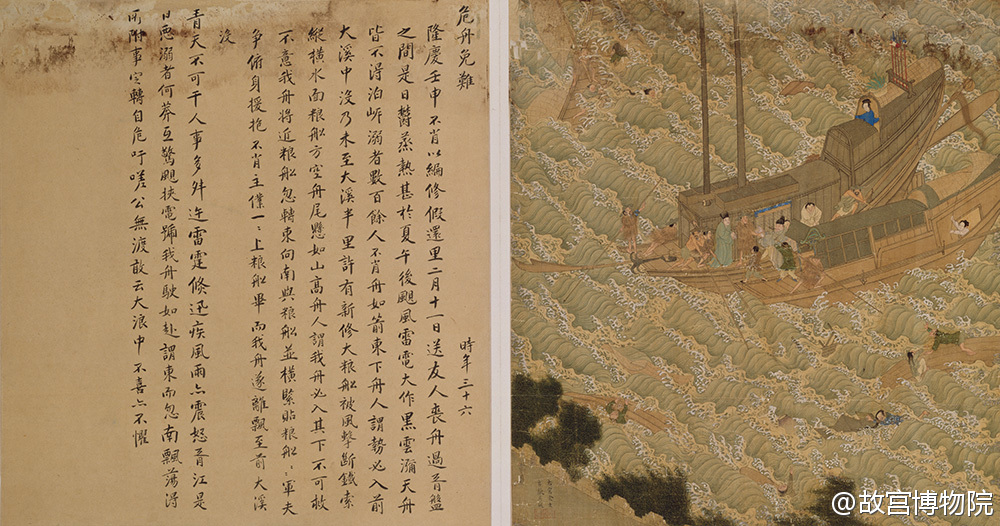 危舟免難
時年三十六
隆慶壬申不肖以編修假還里二月十一日送友人喪舟過胥盤
之間是日鬱蒸熱甚於夏午後颶風雷電大作黑雲瀰天舟
皆不得泊岍溺者數百餘人不肖舟如箭東下舟人謂勢必入前
大溪中沒乃未至大溪半里許有新修大粮舩被風擊斷鐵索
縱橫水面粮舩方空舟尾懸如山高舟人謂我舟必入其下不可救
不意我舟將近粮舩忽轉東向南與粮舩並橫緊貼粮舩〻軍夫
爭俯身援抱不肖主僕一〻上粮舩畢而我舟遂離飄至前大溪
沒
青天不可干人事多舛迕雷霆倏迅疾風雨亦震怒胥江是
日恶溺者何莽互驚颶挾電號我舟駛如赴謂東而忽南飄蕩得
所附事定轉自危吁嗟公無渡敢云大浪中不喜亦不懼
@故宫博物院